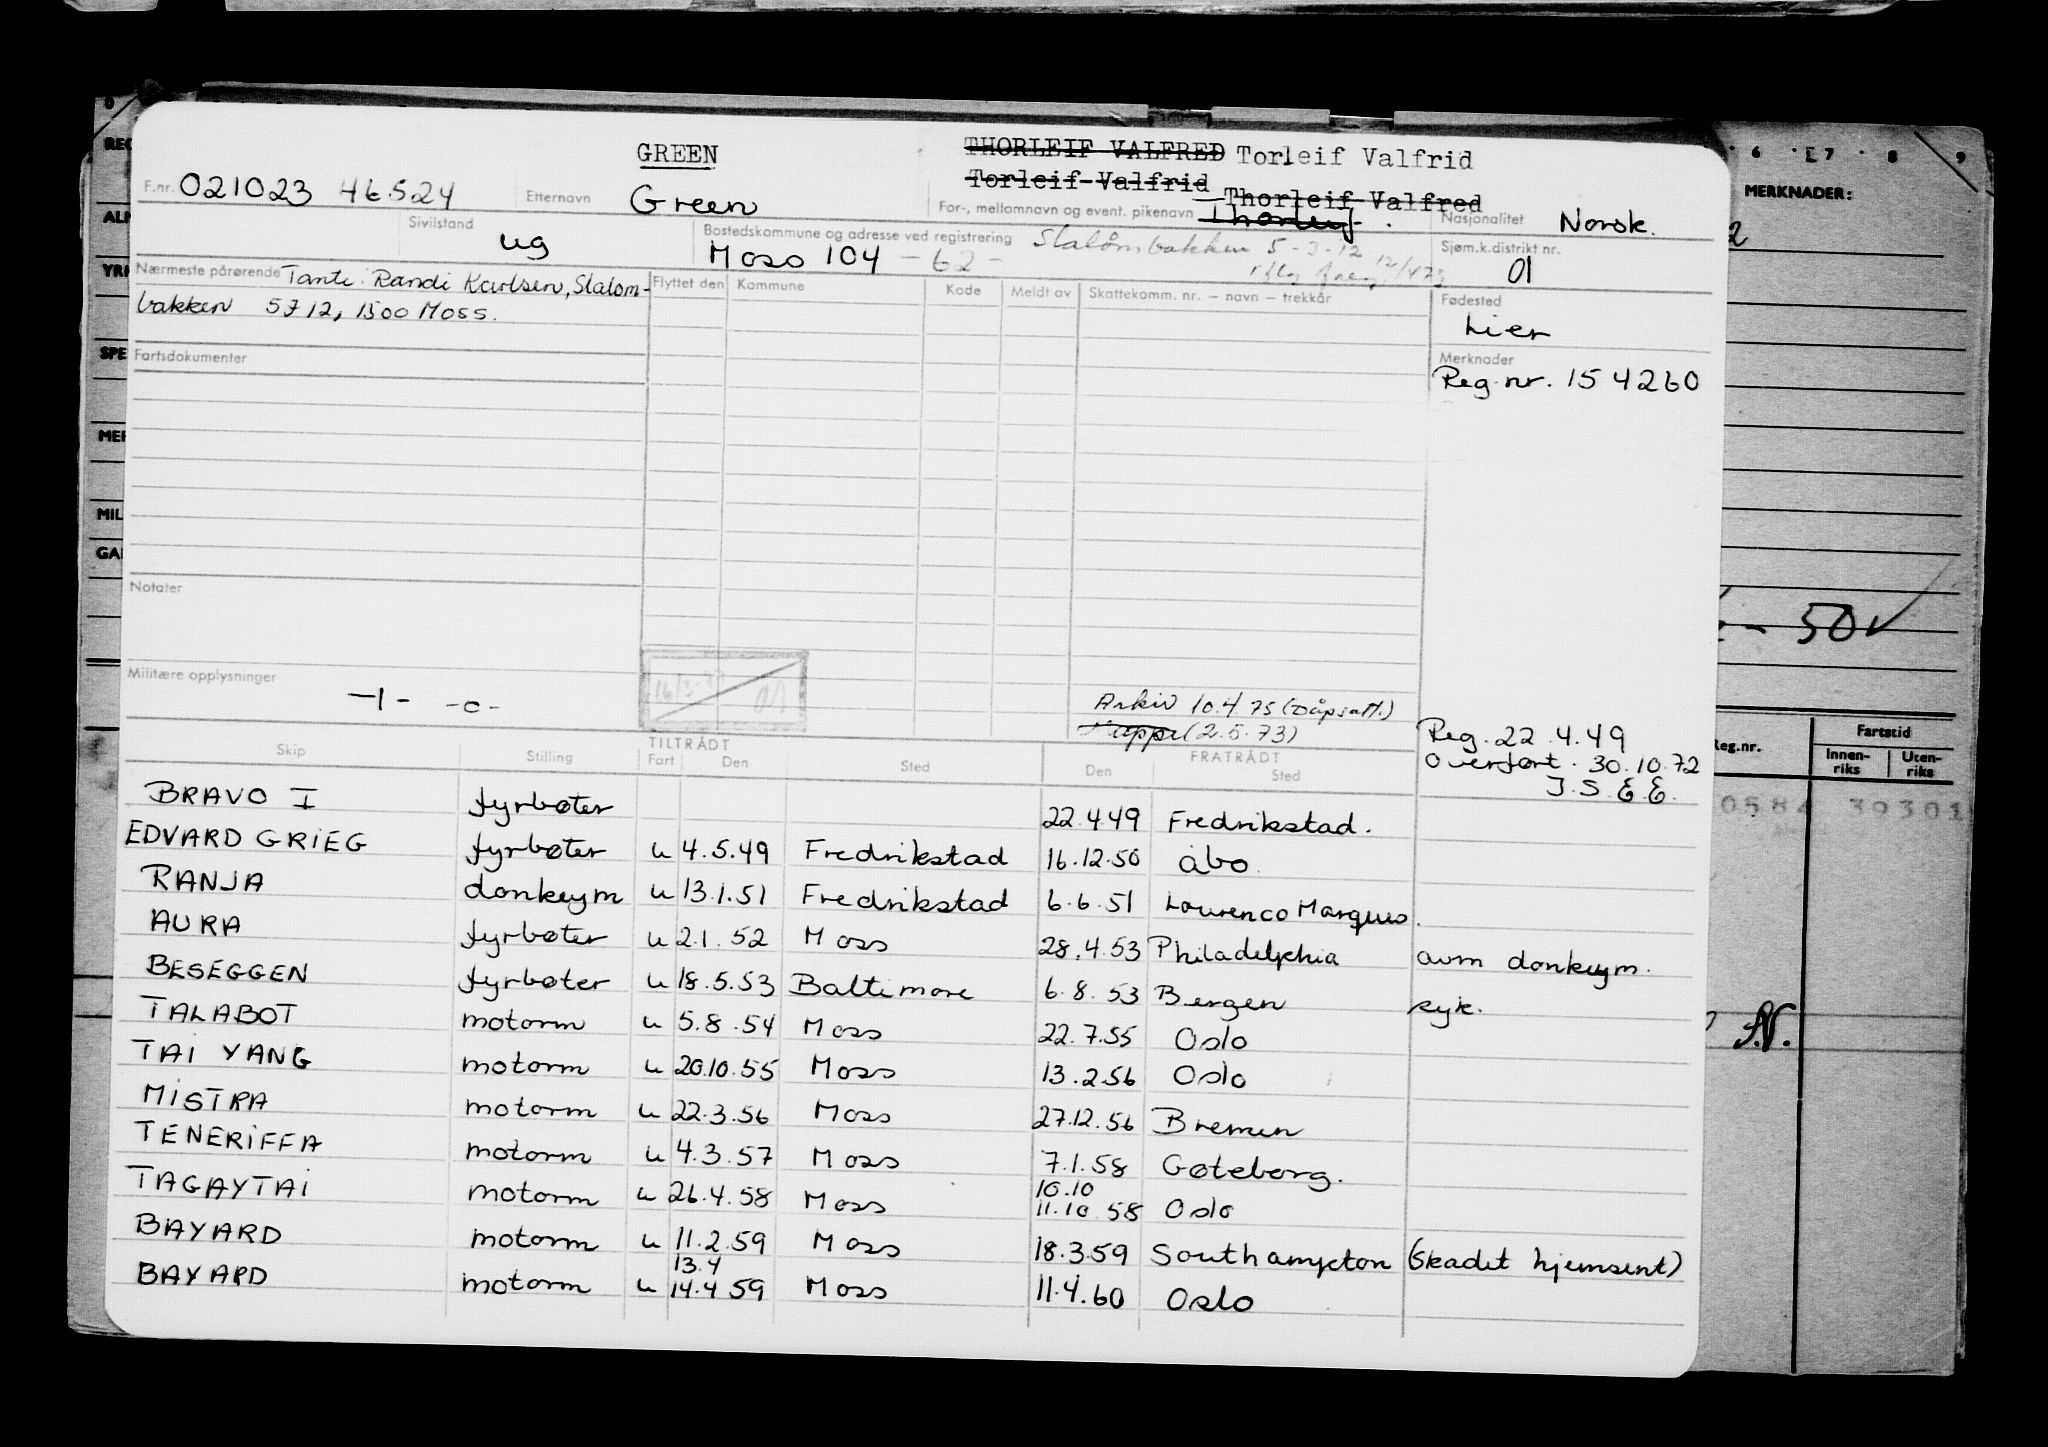 GREEN THORLEIF VALFRED Torleif Valfrid
Torleif Valfrid Thorleif Valfred
F.nr. 021023 46524 Etternavn Green For-, mellomnavn og event. pikenavn Thorleif. Nasjonalitet Norsk.
Sivilstand ug Bostedskommune og adresse ved registrering Moss 104 - 62 - Slalåmbakken 5-3-12 Sjøm.k.distrikt nr. 01
Nærmeste pårørende Tante Randi Karlsen, Slalom-
bakken 5712, 1500 Moss.
Flyttet den Kommune Kode Meldt av Skattekomm. nr. – navn – trekkår Fødested
Lier
Fartsdokumenter
Merknader
Reg.nr. 154260
Notater
Militære opplysninger
-1- -0-
Arkiv 10.4.75 (Dåpsatt.)
Mappe (2.5.73)
Reg. 22.4.49
Overført. 30.10.72
J.S.E.E.
Skip Stilling TILTRÅDT Fart Den Sted FRATRÅDT Den Sted
BRAVO I fyrbøter 22.4.49 Fredrikstad.
EDVARD GRIEG fyrbøter u 4.5.49 Fredrikstad 16.12.50 Åbo
RANJA donkeym u 13.1.51 Fredrikstad 6.6.51 Lourenco Marques.
AURA fyrbøter u 2.1.52 Moss 28.4.53 Philadelphia avm donkeym.
BESEGGEN fyrbøter u 18.5.53 Baltimore 6.8.53 Bergen syk.
TALABOT motorm u 5.8.54 Moss 22.7.55 Oslo
TAI YANG motorm u 20.10.55 Moss 13.2.56 Oslo
MISTRA motorm u 22.3.56 Moss 27.12.56 Bremen
TENERIFFA motorm u 4.3.57 Moss 7.1.58 Gøteborg.
TAGAYTAI motorm u 26.4.58 Moss 10.10 11.10.58 Oslo
BAYARD motorm u 11.2.59 Moss 18.3.59 Southampton (skadet hjemsent)
BAYARD motorm u 13.4 14.4.59 Moss 11.4.60 Oslo
6 7 8 9
MERKNADER:
2
- 50
Reg.nr. Fartstid
Innen-
riks Uten-
riks
0584 39301